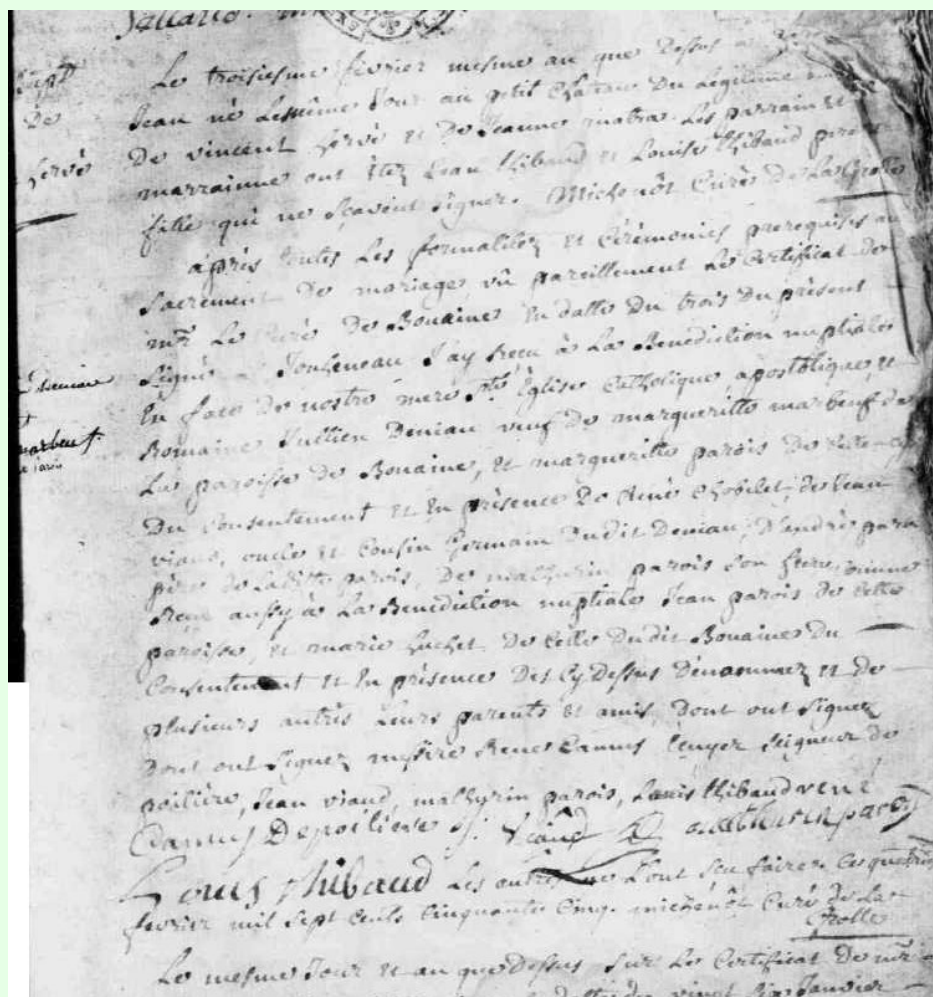 Le troisiesme février mesme an que Dessus a
Jean né Le même Jour au petit Château Du
De vincent hervé et De Jeanne mabra Les parrain et
hervé
marrainne ont Étez Jean thibaud et Louise thibaud
fille qui ne scavent signer. Michenôt Curé de La Grolle
après toutes Les formalitez et Cérémonies prerequises au
Sacrement De mariage vû pareillement Le Certificat de
mr. Le Curé De Bouaine En datte Du trois Du présent
Signé J'ay Receu à La Benediction nuptiale
En face De nostre mere ste. Église Catholique, apostolique, et
Romaine Jullien Deniau veuf de margueritte marbeuf de
La paroisse de Bouaine, et margueritte parois De
Du Consentement et En présence De Aimé Chobelet, de Jean
viaud, oncle et Cousin Germain Dudit Deniau, D'andré
père de Laditte parois, De mathurin parois son frere, comme
Reçu aussy à La Benediction nuptiale Jean parois de Cette
paroisse, et marie huchet De Celle Dudit Bouaine Du
Consentement et En présence Des Cy Dessus Dénommez et de
plusieurs autres Leurs parents et amis, Dont ont Signez
Dont ont Signez messire Rene Camus Ecuyer Seigneur de
poilière, Jean viaud, mathurin parois, Louis thibaud rene
Camus Depoiliere J. Viaud mathurin parois
Louis thibaud Les autres ne L'ont sçu faire. Ce quatre
février mil sept Cents Cinquante Cinq. michenôt Curé de La
Grolle
Le mesme Jour et an que Dessus sur Le Certificat De mr.
vingt six Janvier